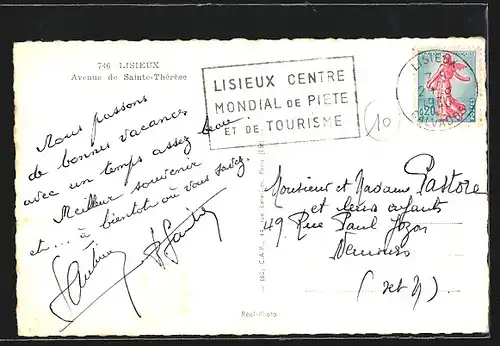 746 LISIEUX
Avenue de Sainte-Thérèse
LISIEUX CENTRE
MONDIAL DE PIETE
ET DE TOURISME
LISIEUX
CALVADOS
0,20
10
Nous passons
de bonnes vacances
avec un temps assez beau !
Meilleur souvenir
et ... à bientôt où vous savez.
Monsieur et Madame Pastore
et leurs enfants
49 Rue Paul
Nemours
(Set M)
Real-Photo